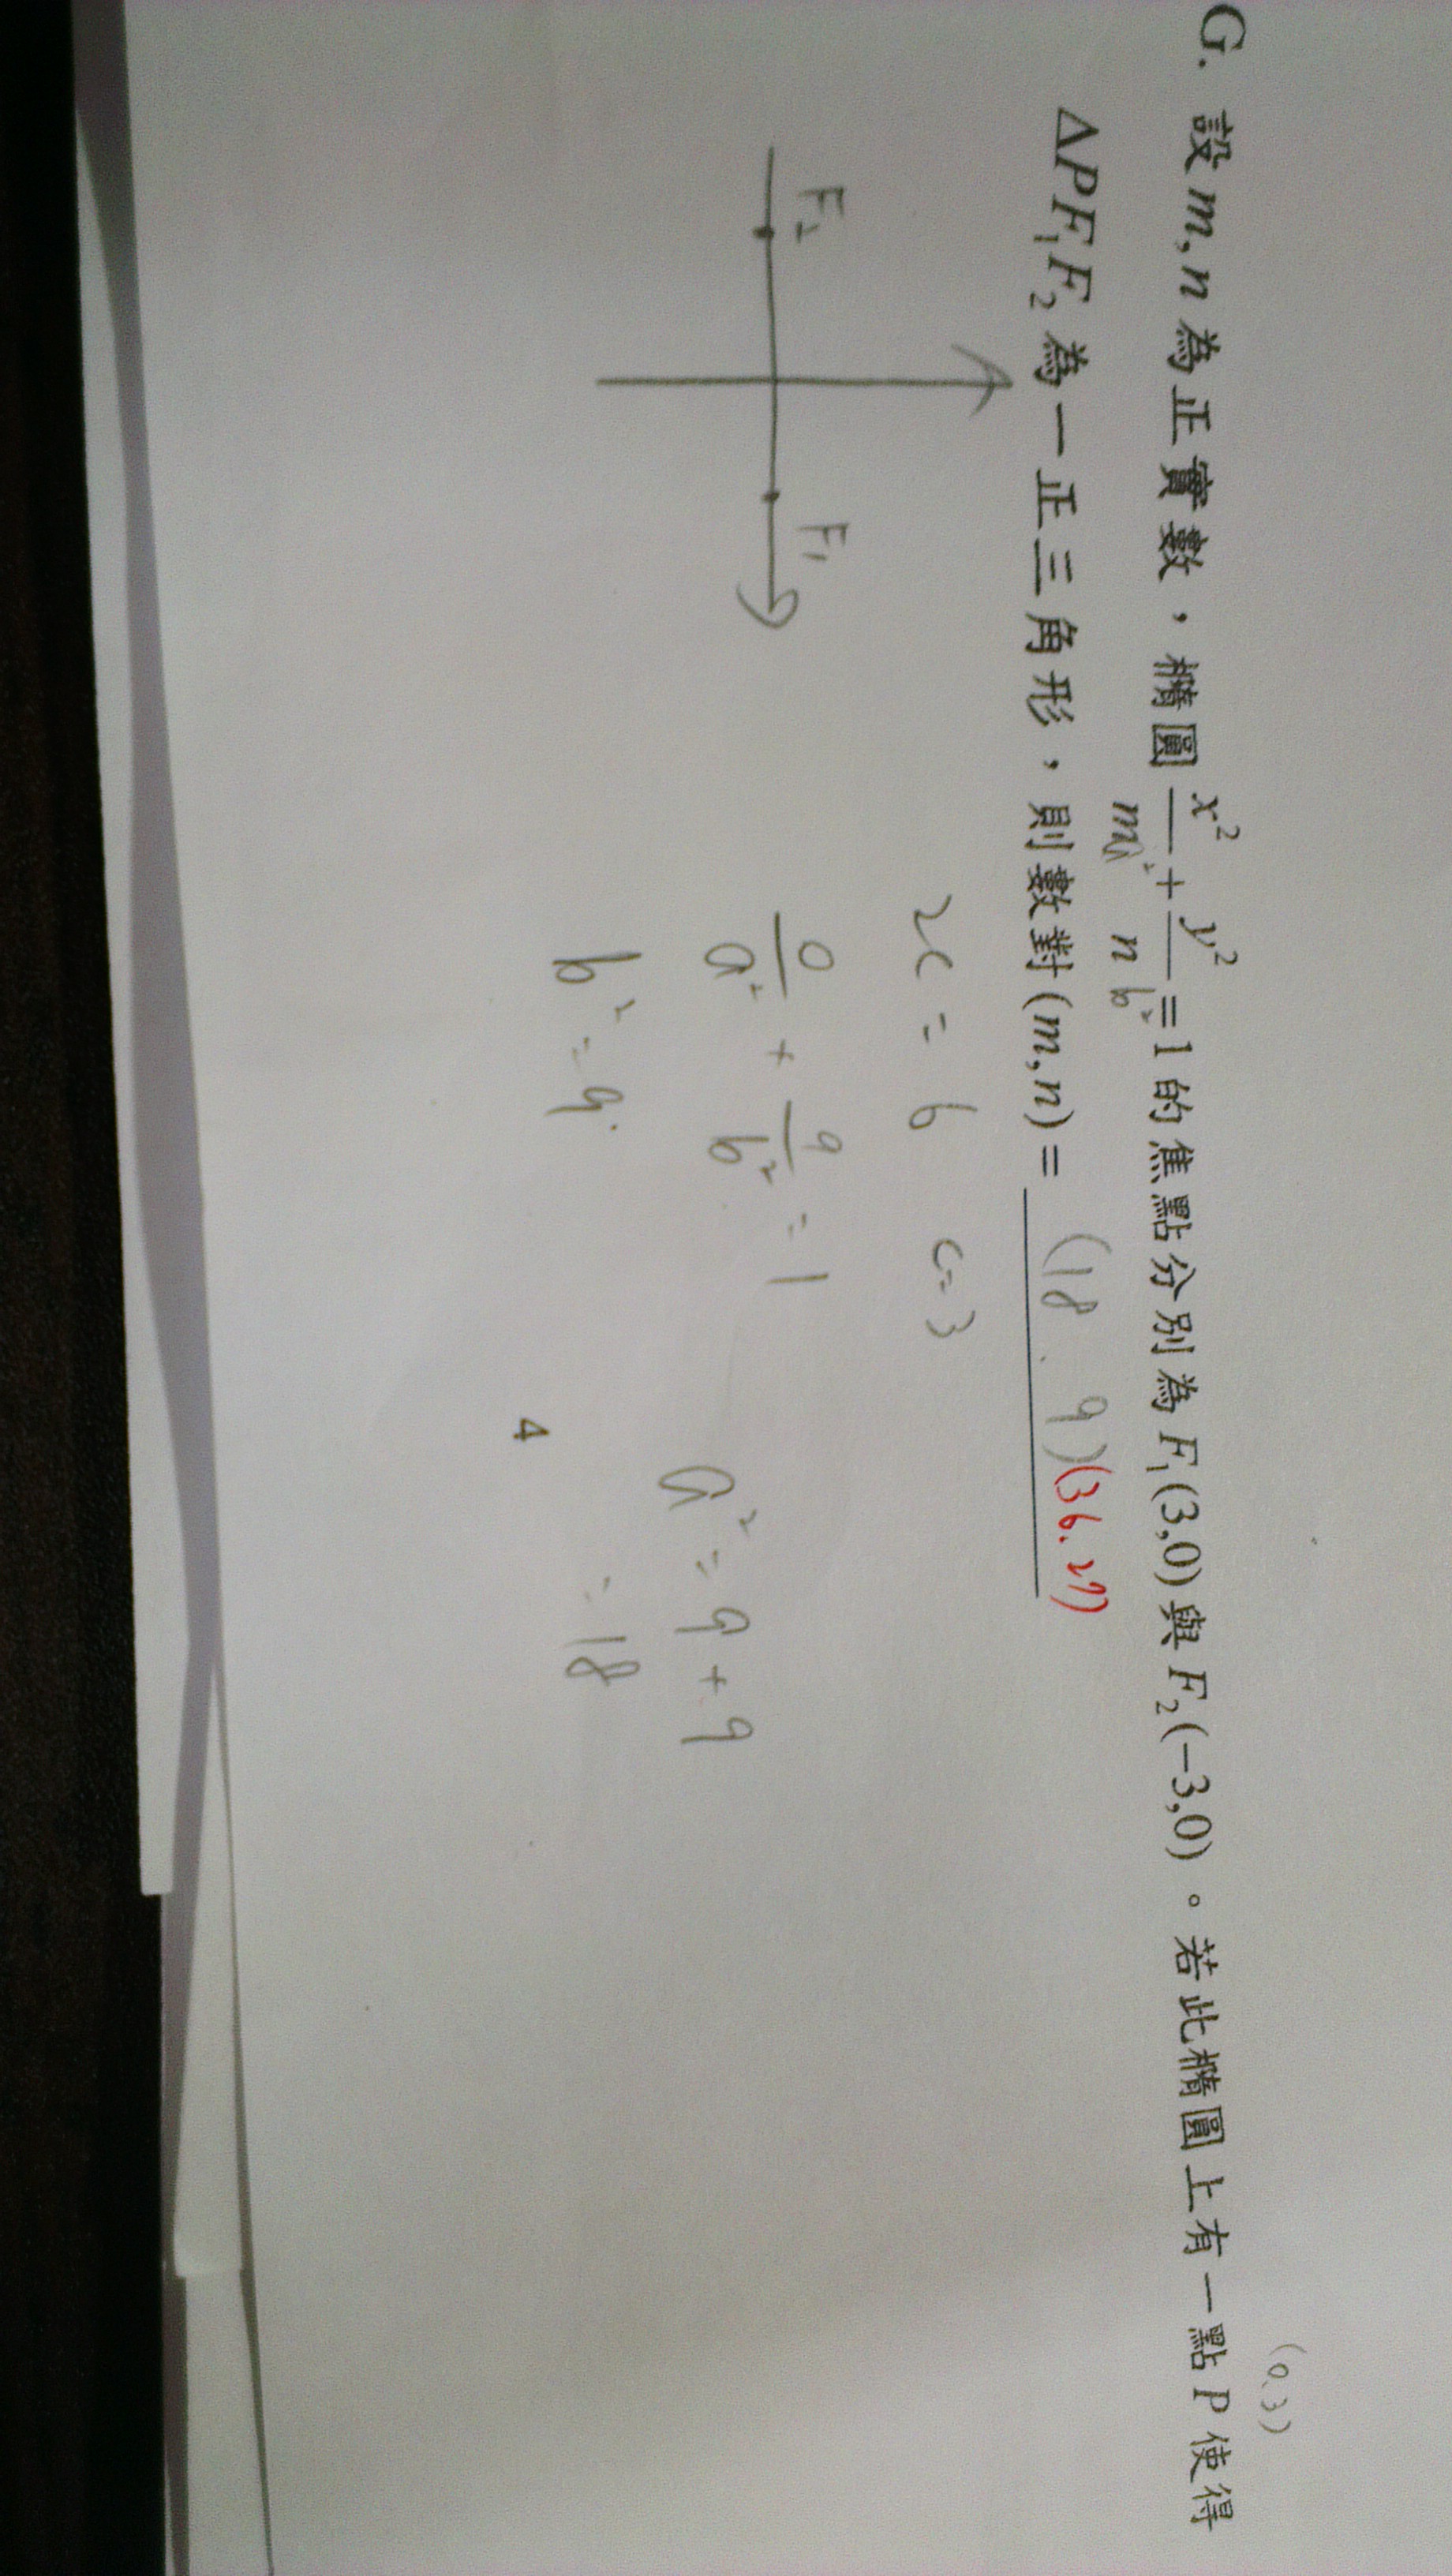 (0,3)
G. 設 m, n 為正實數，橢圓 x²/m + y²/n = 1 的焦點分別為 F₁(3,0) 與 F₂(−3,0)。若此橢圓上有一點 P 使得
a² b²
ΔPF₁F₂ 為一正三角形，則數對 (m, n) = (18, 9) (36, 27)
2c = 6 c=3
F₂ F₁
0/a² + 9/b² = 1
b² = 9
a² = 9 + 9
= 18
4